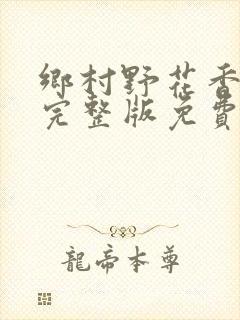 鄉村野花香
完整版免費
龍帝本尊